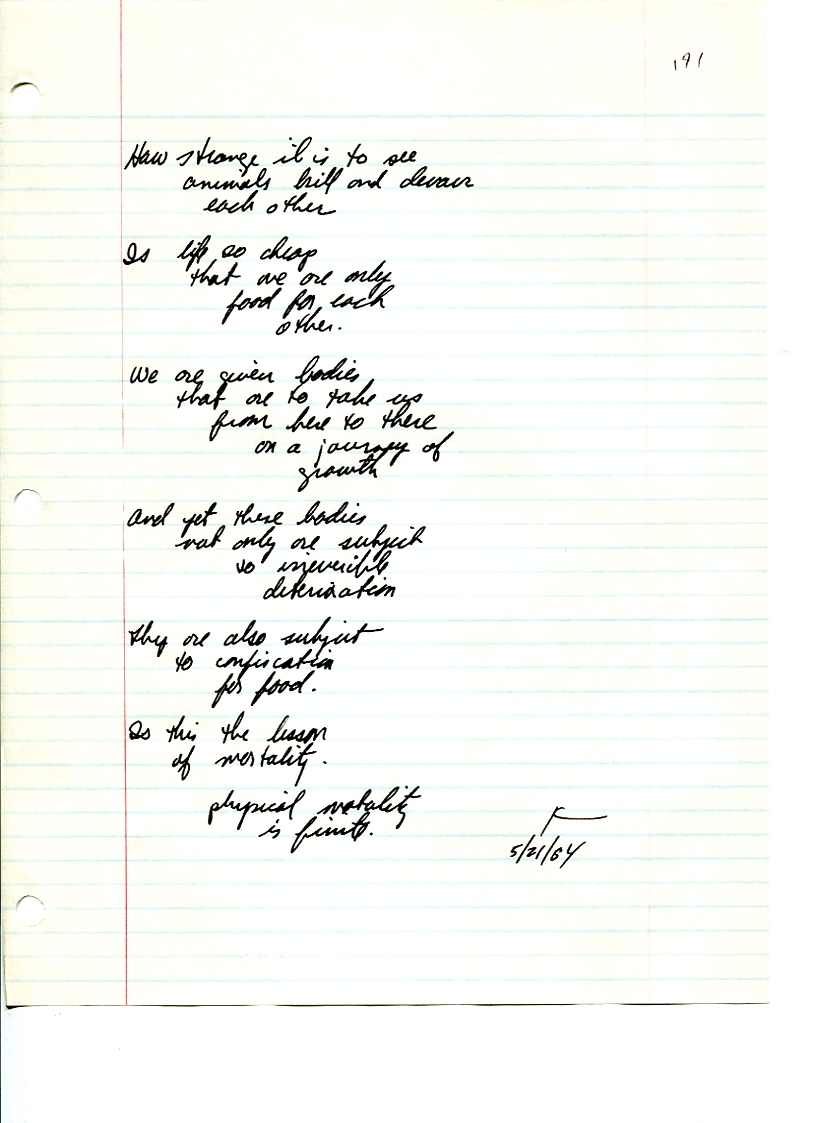 191
How strange it is to see
animals kill and devour
each other
Is life so cheap
that we are only
food for each
other.
We are given bodies
that are to take us
from here to there
on a journey of
growth
And yet these bodies
not only are subject
to irreversible
deterioration
they are also subject
to confiscation
for food.
Is this the lesson
of mortality.
physical mortality
is finite.
5/21/84